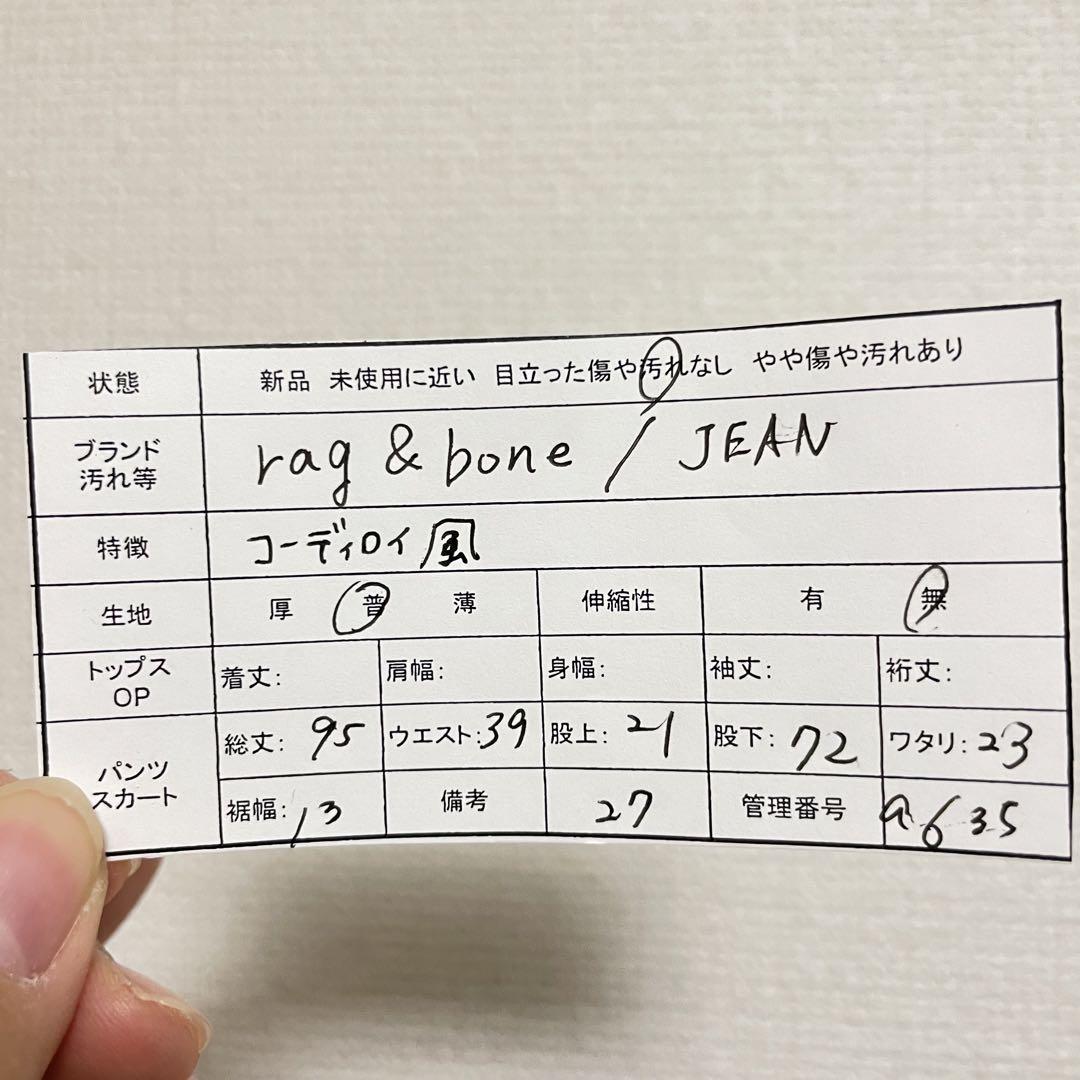 状態 新品 未使用に近い 目立った傷や汚れなし やや傷や汚れあり
ブランド
汚れ等 rag & bone / JEAN
特徴 コーディロイ風
生地 厚 普 薄 伸縮性 有 無
トップス
OP 着丈: 肩幅: 身幅: 袖丈: 裄丈:
パンツ
スカート
総丈: 95 ウエスト:39 股上: 21 股下: 72 ワタリ: 23
裾幅: 13 備考 27 管理番号 a635